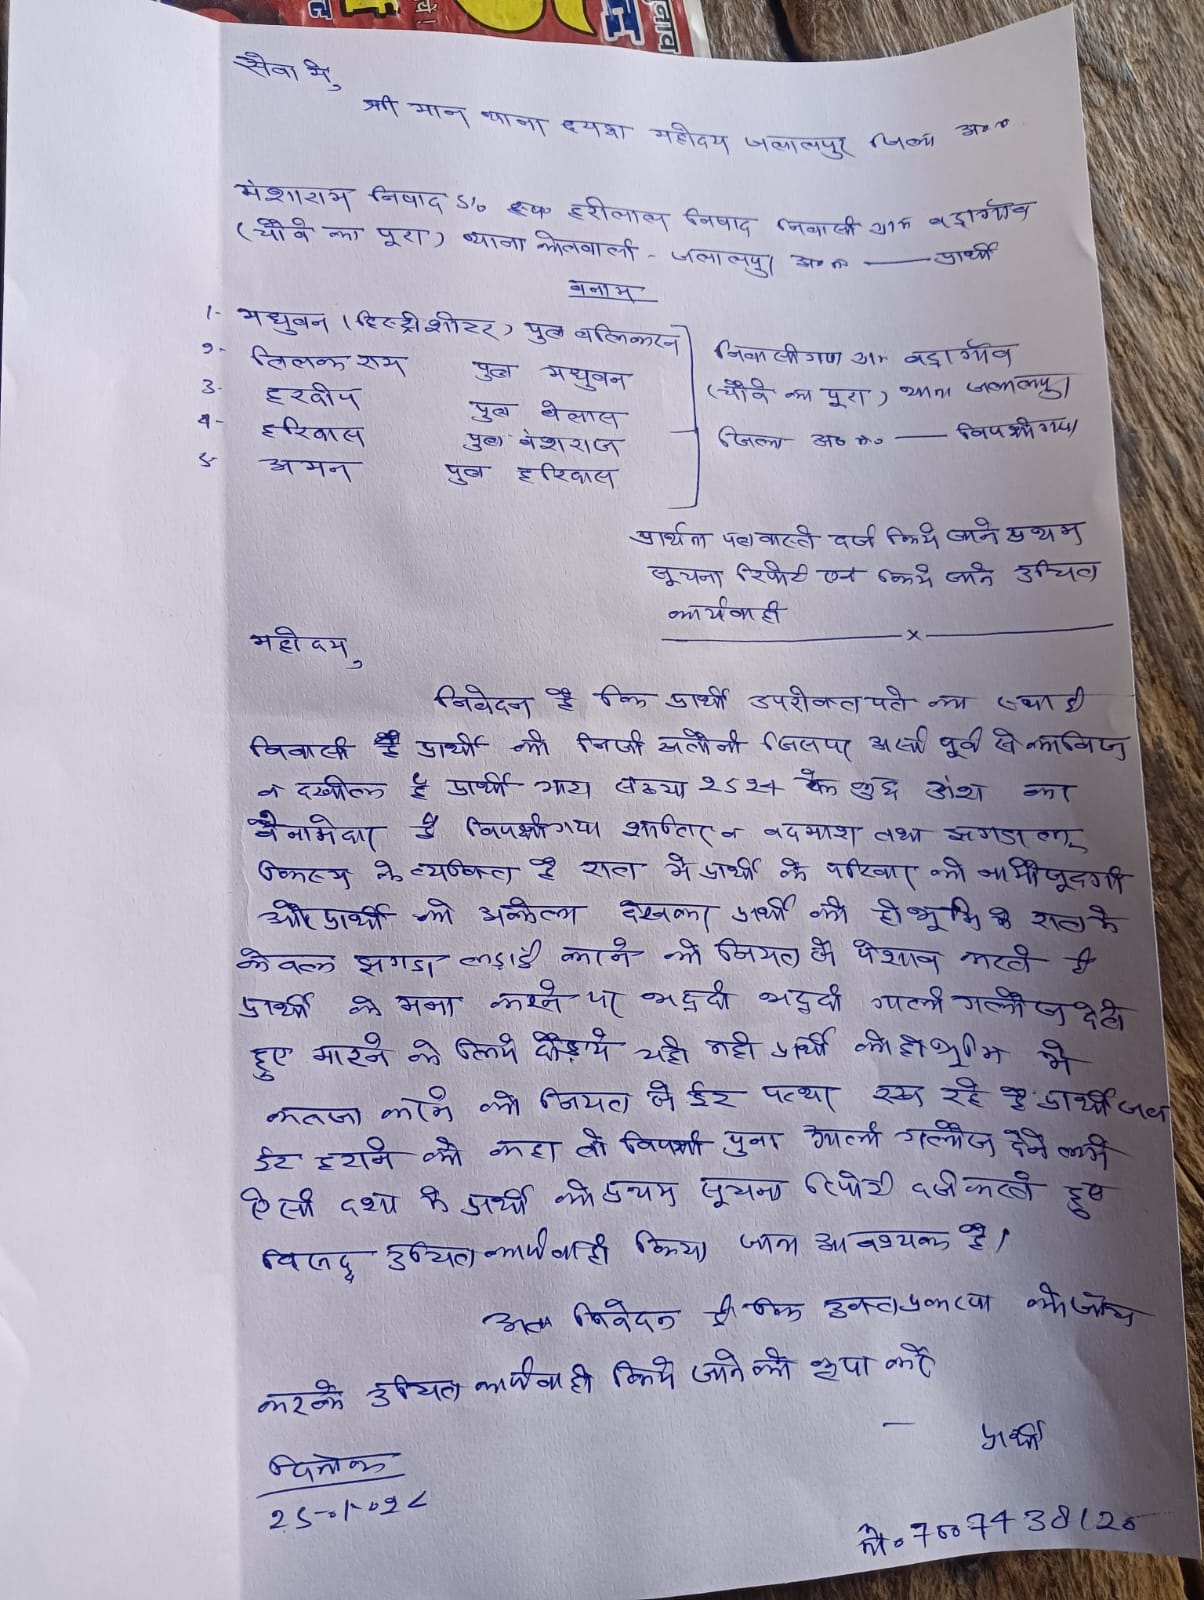 सेवा में,
श्री मान थाना ध्यक्ष महोदय जलालपुर जिला अ०न०
मंशाराम निषाद S/o हरीलाल निषाद निवासी ग्राम बड़ागाँव
(चौबे का पूरा) थाना कोतवाली - जलालपुर अ०न० —— प्रार्थी
बनाम
1- मधुवन (हिस्ट्रीशीटर) पुत्र बलिकरन
2- तिलक राम पुत्र मधुवन
3- हरदीप पुत्र
4- हरिदास पुत्र वंशराज
5- अमन पुत्र हरिदास
निवासीगण ग्राम बड़ागाँव
(चौबे का पूरा) थाना जलालपुर
जिला अ०न० —— विपक्षीगण
प्रार्थना पत्र वास्ते दर्ज किये जाने प्रथम
सूचना रिपोर्ट एवं किये जाने उचित
कार्यवाही
——x——
महोदय,
निवेदन है कि प्रार्थी उपरोक्त पते का स्थाई
निवासी है प्रार्थी की निजी जिसपर पूर्व से काबिज
व दखील है प्रार्थी गाटा संख्या 2524 के शुद्ध अंश का
बैनामेदार है विपक्षीगण शातिर व बदमाश तथा झगडालू
किस्म के व्यक्ति है रात में प्रार्थी के परिवार की
और प्रार्थी को अकेला देखकर प्रार्थी की ही भूमि में रात के
केवल झगडा लड़ाई करने की नियत से पेशाब करते है
प्रार्थी के मना करने पर भद्दी भद्दी गाली गलौज देते
हुए मारने के लिये दौड़ाये यही नही प्रार्थी की ही भूमि में
कब्जा करने की नियत से ईट पत्थर रख रहे है प्रार्थी जब
ईट हटाने को कहा तो विपक्षी पुनः गाली गलौज देने लगे
ऐसी दशा में प्रार्थी की प्रथम सूचना रिपोर्ट दर्ज करते हुए
विरुद्ध उचित कार्यवाही किया जाना आवश्यक है।
अतः निवेदन है कि उक्त प्रकरण की जाँच
करके उचित कार्यवाही किये जाने की कृपा करें
— प्रार्थी
दिनांक
मो०